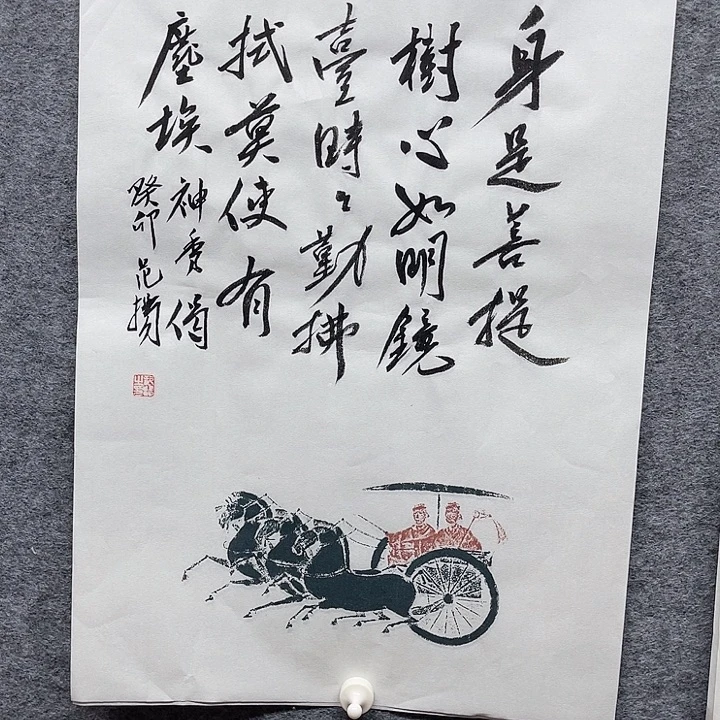 身是善提
樹心如明鏡
臺時々勤拂
拭莫使有
塵埃 神秀偈
癸卯 范